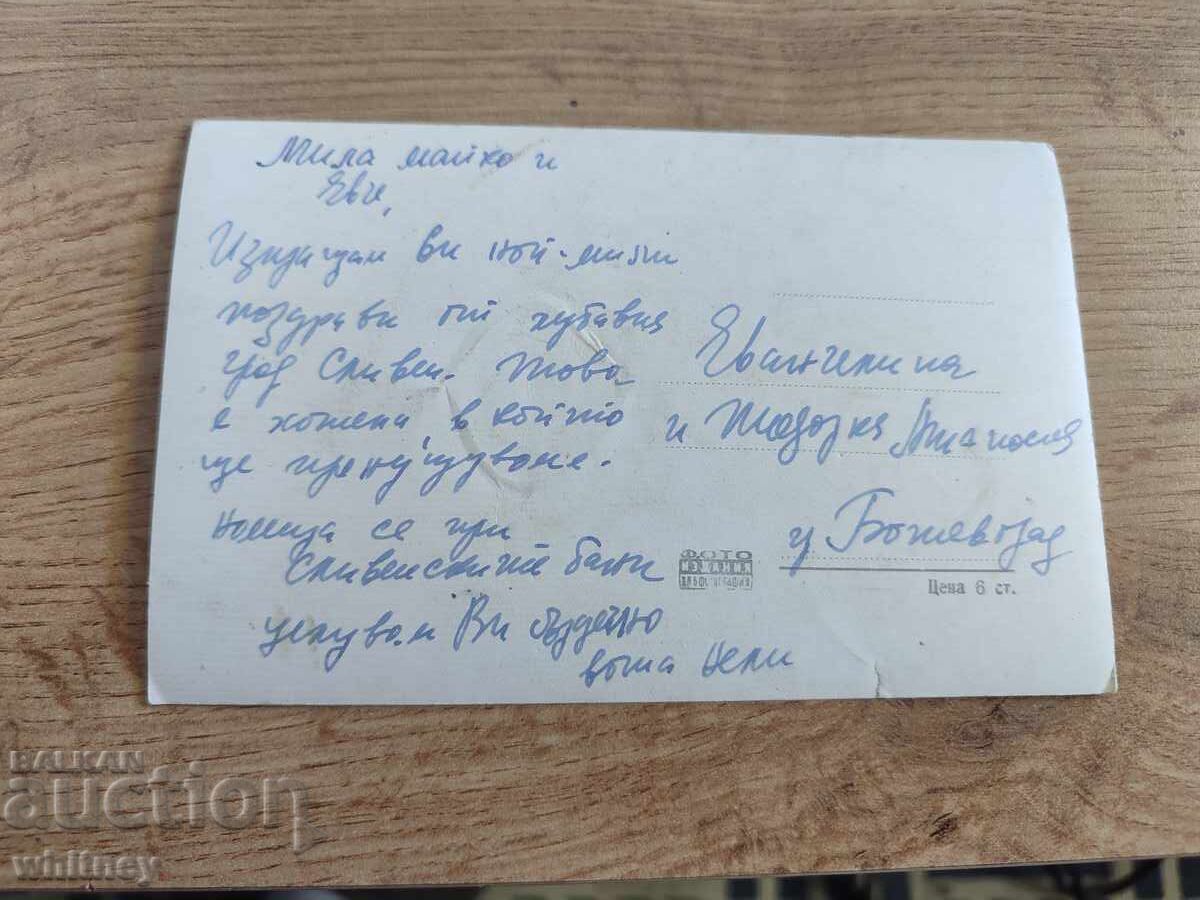 Мила майко и
Евче,
Изпращам ви най-мили
поздрави от хубавия
град Сливен. Това
е хотела, в който
ще пренощуваме.
Намира се при
Сливенските бани
целувам Ви сърдечно
ваша Нели
Евангелина
и Тодорка
Цена 6 ст.
ФОТО
ИЗДАНИЯ
BALKAN
auction
whitney